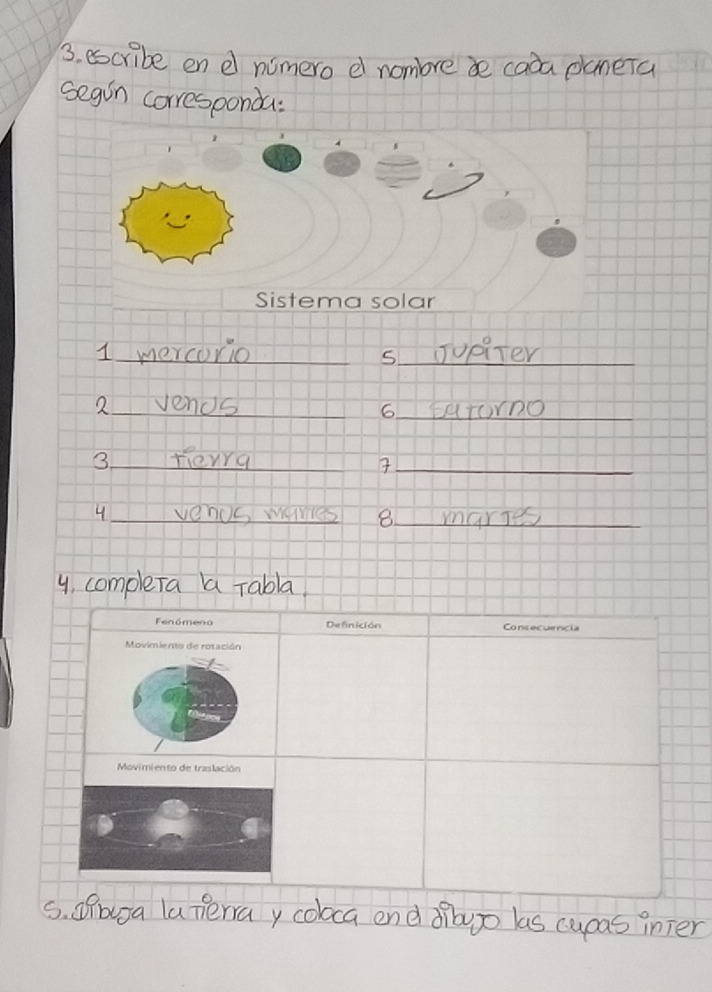 3. escribe en el número el nombre de cada planeta
según corresponda:
1 2 3 4 5 6 7 8
Sistema solar
1 mercurio 5 Jupiter
2 venus 6 saturno
3 tierra 7
4 venus martes 8 martes
4. completa la tabla.
Fenómeno Definición Consecuencia
Movimiento de rotación
ECUADOR
Movimiento de traslación
5. dibuja la tierra y coloca en el dibujo las cupas inter